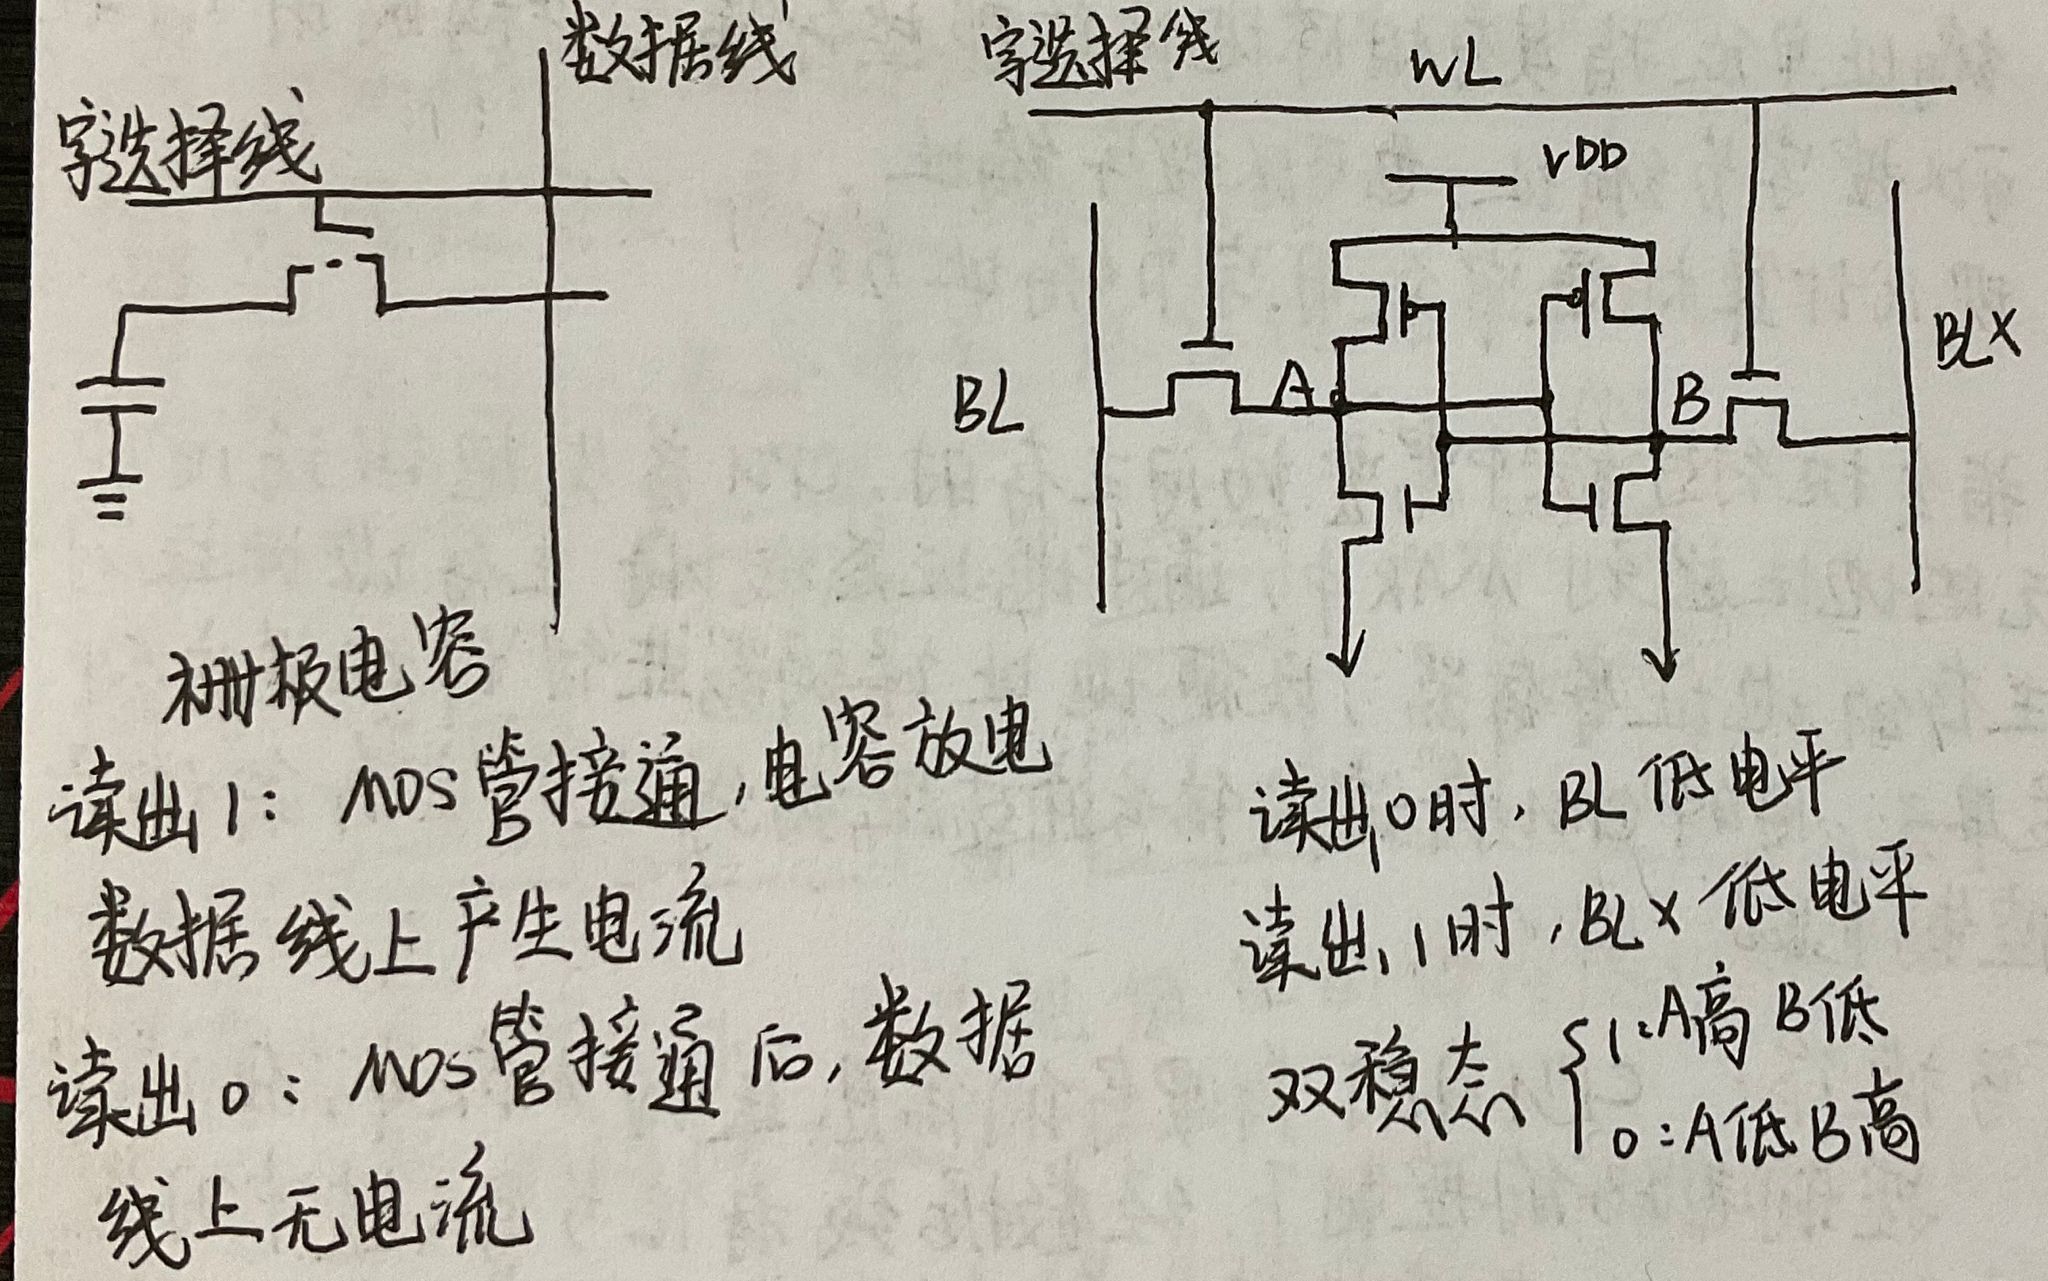 数据线
字选择线
栅极电容
读出1：MOS管接通，电容放电
数据线上产生电流
读出0：MOS管接通后，数据
线上无电流
字选择线 WL
VDD
BL
A
B
BLX
读出0时，BL低电平
读出1时，BLX低电平
双稳态 { 1：A高B低
0：A低B高